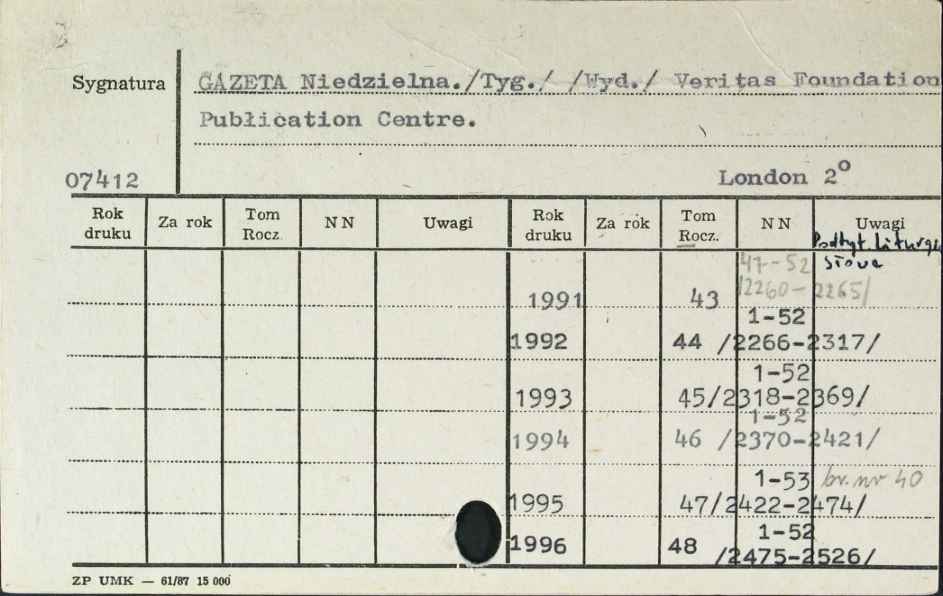 Sygnatura GAZETA Niedzielna./Tyg./ /Wyd./ Veritas Foundation
Publication Centre.
07412 London 2°
Rok druku Za rok Tom Rocz. NN Uwagi Rok druku Za rok Tom Rocz. NN Uwagi
Podtyt. Liturgia
słowa
47-52
1991 43 /2260-2265/
1-52
1992 44 /2266-2317/
1-52
1993 45/2318-2369/
1-52
1994 46 /2370-2421/
1-53 br. nr 40
1995 47/2422-2474/
1-52
1996 48 /2475-2526/
ZP UMK — 61/87 15 000